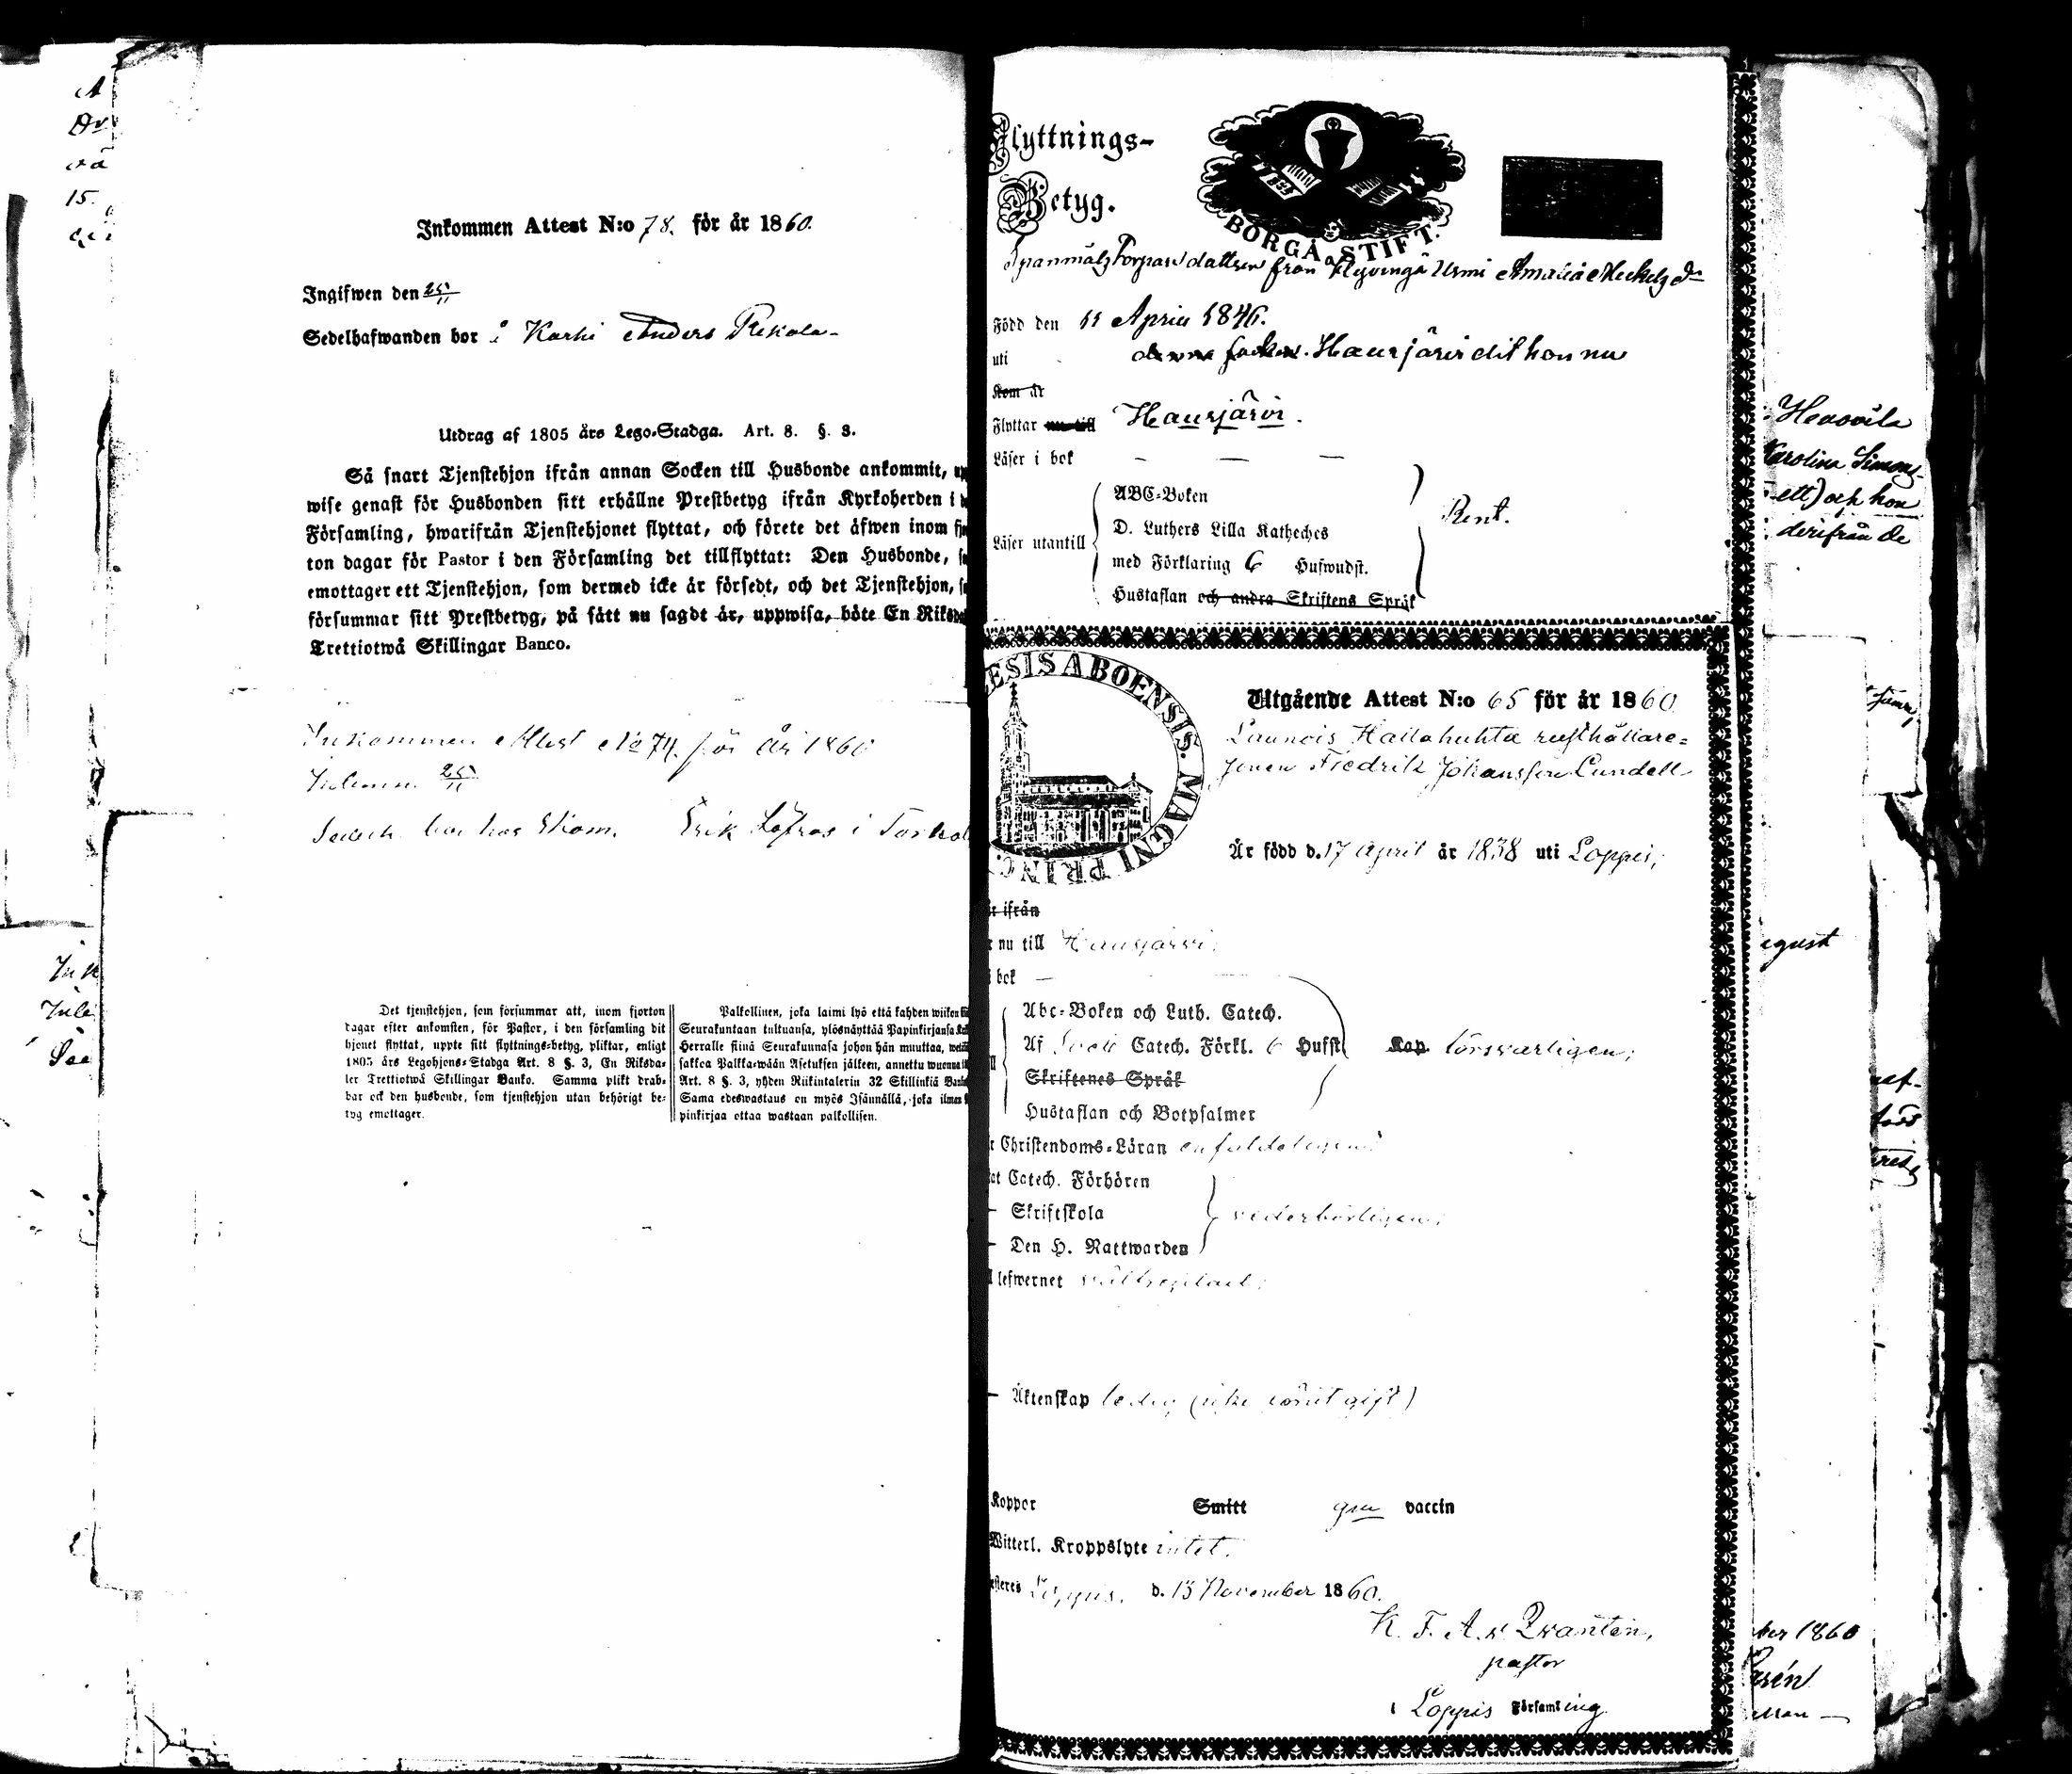 Inkommen Attest N:o 78. för år 1860.
Ingifwen den 25/11
Sedelhafwanden bor i Karhi Anders Rekola
Utdrag af 1805 års Lego-Stadga. Art. 8. §. 3.
Så snart Tjenstehjon ifrån annan Socken till Husbonde ankommit, up
wise genast för Husbonden sitt erhållne Prestbetyg ifrån Kyrkoherden i
Församling, hwarifrån Tjenstehjonet flyttat, och förete det äfwen inom fj
ton dagar för Pastor i den Församling det tillflyttat: Den Husbonde,
emottager ett Tjenstehjon, som dermed icke är försedt, och det Tjenstehjon,
försummar sitt Prestbetyg, på sätt nu sagdt är, uppwisa, böte En Riksd
Trettiotwå Skillingar Banco.
Inkommen Attest No 74. för År 1860
Inlemn. 25/11
bor hos Erik Löfros i
Det tjenstehjon, som försummar att, inom fjorton
dagar efter ankomsten, för Pastor, i den församling dit
hjonet flyttat, uppte sitt flyttnings-betyg, pliktar, enligt
1805 års Legohjons-Stadga Art. 8 §. 3, En Riksda-
ler Trettiotwå Skillingar Banko. Samma plikt drab-
bar ock den husbonde, som tjenstehjon utan behörigt be-
tyg emottager.
Palkollinen, joka laimi lyö että kahden wiikon
Seurakuntaan tultuansa, ylösnäyttää Papinkirjansa
Herralle siinä Seurakunnasa johon hän muuttaa,
sakkoa Palkka-wään Asetuksen jälkeen, annettu wuonna
Art. 8 §. 3, yhden Riikintalerin 32 Skillinkiä
Sama edeswastaus on myös Isännällä, joka ilman
pinkirjaa ottaa wastaan palkollisen.
Flyttnings-
Betyg.
BORGÅ STIFT.
Spanmåls Torpare dottren från Hyvingä Usmi Amalia Michelsdr
Född den 11 April 1846.
uti denna socken. Hausjärvi dit hon nu
Kom år
Flyttar nu till Hausjärvi.
Läser i bok — — —
ABC-Boken
D. Luthers Lilla Katheches
Läser utantill
med Förklaring 6 Hufwudst.
Hustaflan och andra Skriftens Språk
Rent.
ESIS ABOENSIS. MAGNI PRINC.
Utgående Attest N:o 65 för år 1860
Launois Hallahuhta rusthållare-
sonen Fredrik Johansson Lundell
Är född d. 17 April år 1838 uti Loppis;
år ifrån
nu till Hausjärvi;
i bok —
Abc-Boken och Luth. Catech.
Af Sveb. Catech. Förkl. 6 Hufst
Skriftenes Språk
Hustaflan och Botpsalmer
Kap försvarligen;
Christendoms-Läran enfaldeligen;
at Catech. Förhören
— Skriftskola
— Den H. Nattwarden
vederbörligen;
lefwernet välfrejdad;
— Äktenskap ledig (icke varit gift)
Koppor Smitt gm vaccin
Witterl. Kroppslyte intet.
Loppis, d. 13 November 1860.
K. F. A. v. Qvanten,
pastor
i Loppis Församling
Karolina Simons
ett) och hon
derifrån de
ber 1860